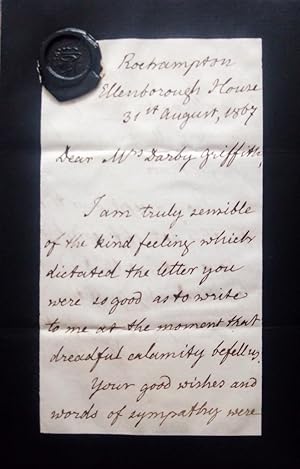 Roehampton
Ellenborough House
31st August, 1867
Dear Mrs Darby Griffith,
I am truly sensible
of the kind feeling which
dictated the letter you
were so good as to write
to me at the moment that
dreadful calamity befell us.
Your good wishes and
words of sympathy were